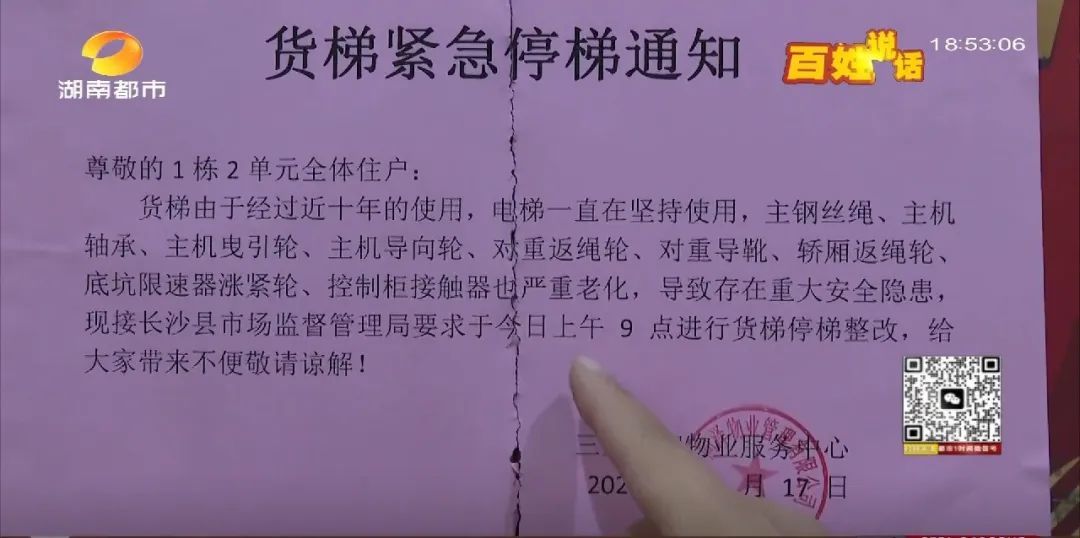 湖南都市
百姓说话
18:53:06
货梯紧急停梯通知
尊敬的1栋2单元全体住户：
货梯由于经过近十年的使用，电梯一直在坚持使用，主钢丝绳、主机
轴承、主机曳引轮、主机导向轮、对重返绳轮、对重导靴、轿厢返绳轮、
底坑限速器涨紧轮、控制柜接触器也严重老化，导致存在重大安全隐患，
现接长沙县市场监督管理局要求于今日上午 9 点进行货梯停梯整改，给
大家带来不便敬请谅解！
三 物业服务中心
202 月 17 日
物业管理有限公司